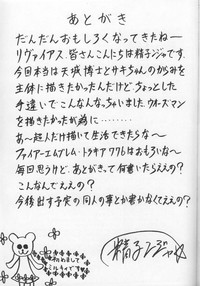 あとがき
だんだんおもしろくなってきたねー
リヴァイアス。皆さんこんにちは精子ンジャです。
今回本当は天城博士とサキちゃんのからみを
主体に描きたかったんだけど、ちょっとした
手違いでこんなんなっちゃいました。ウォーズマン
を描きたかったが為に…
あ〜超人だけ描いて生活できたらな〜
ファイアーエムブレム・トラキア776はおもろいな〜
毎回思うけど、あとがきって何書いたらええの?
こんなんでええの?
今時出す子実の同人の事とか書かなくてええの?
精子ンジャ